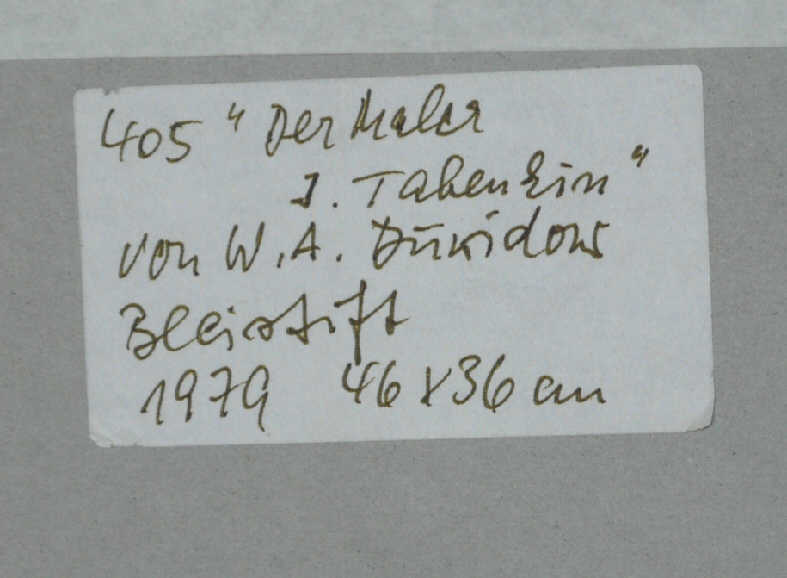 405 "Der Maler
J. Tabenkin"
von W.A. Duwidow
Bleistift
1979 46x36 cm